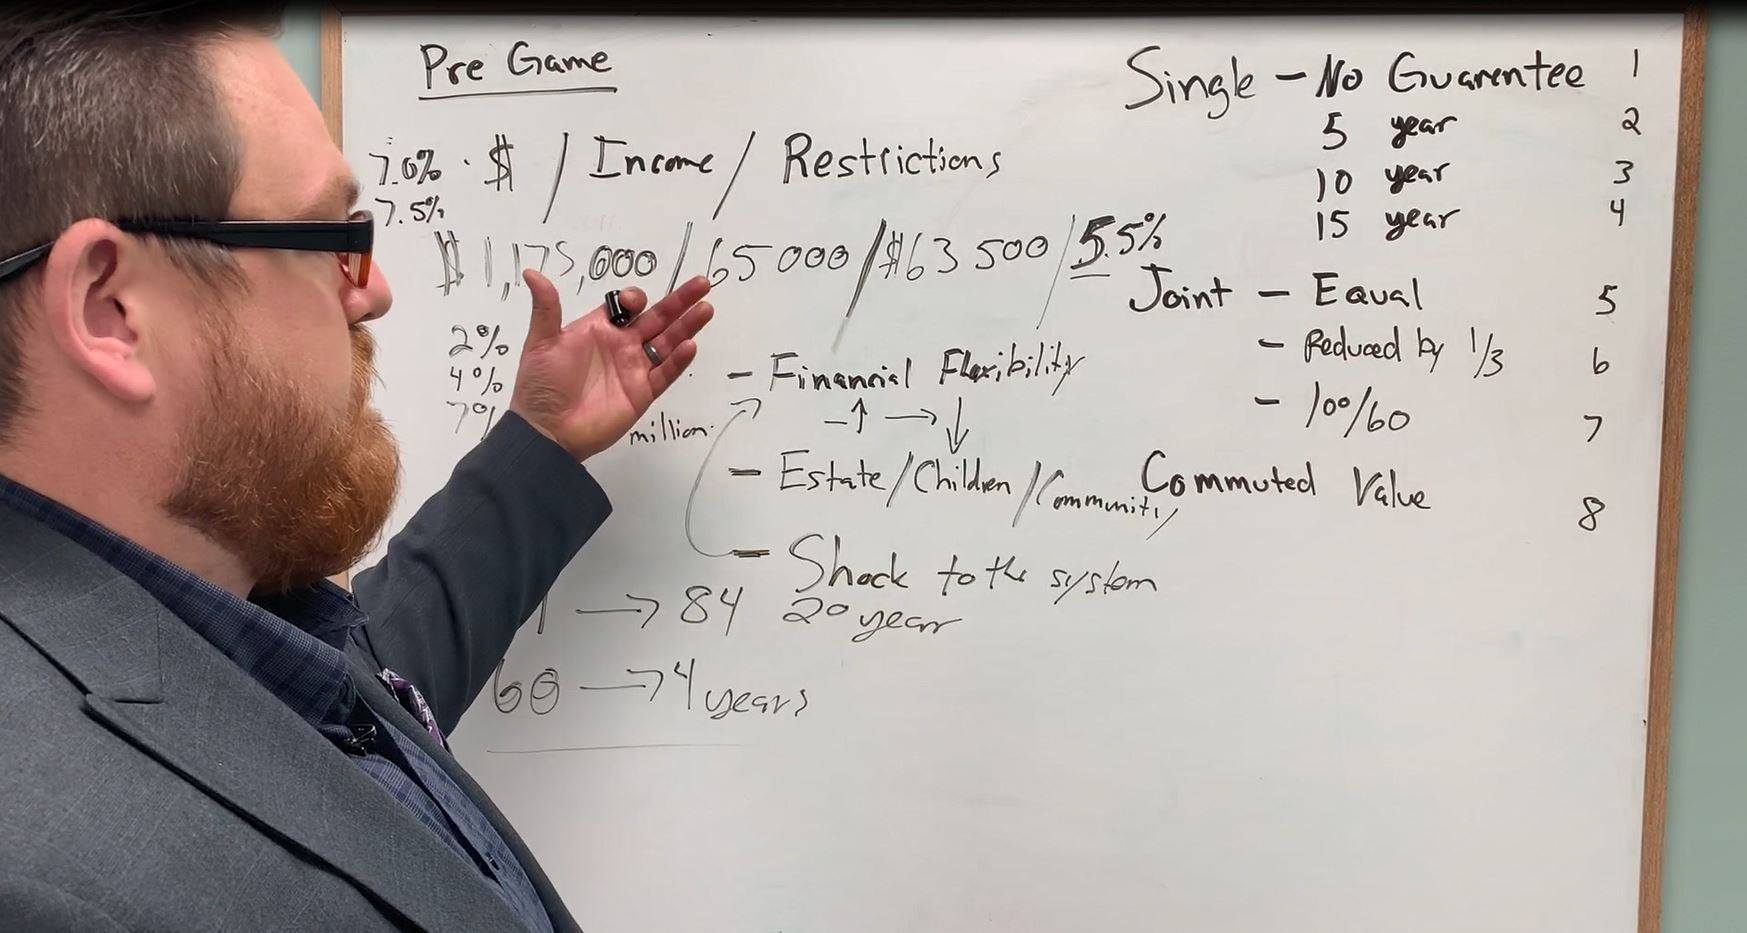 Pre Game
7.0% . $ / Income / Restrictions
7.5%
$1,175,000 / 65 000 / $63 500 / 5.5%
2%
4%
7%
million.
- Financial Flexibility
- Estate / Children / Community
- Shock to the system
→ 84 20 year
60 → 4 years
Single - No Guarentee 1
5 year 2
10 year 3
15 year 4
Joint - Equal 5
- Reduced by 1/3 6
- 100/60 7
Commuted Value 8